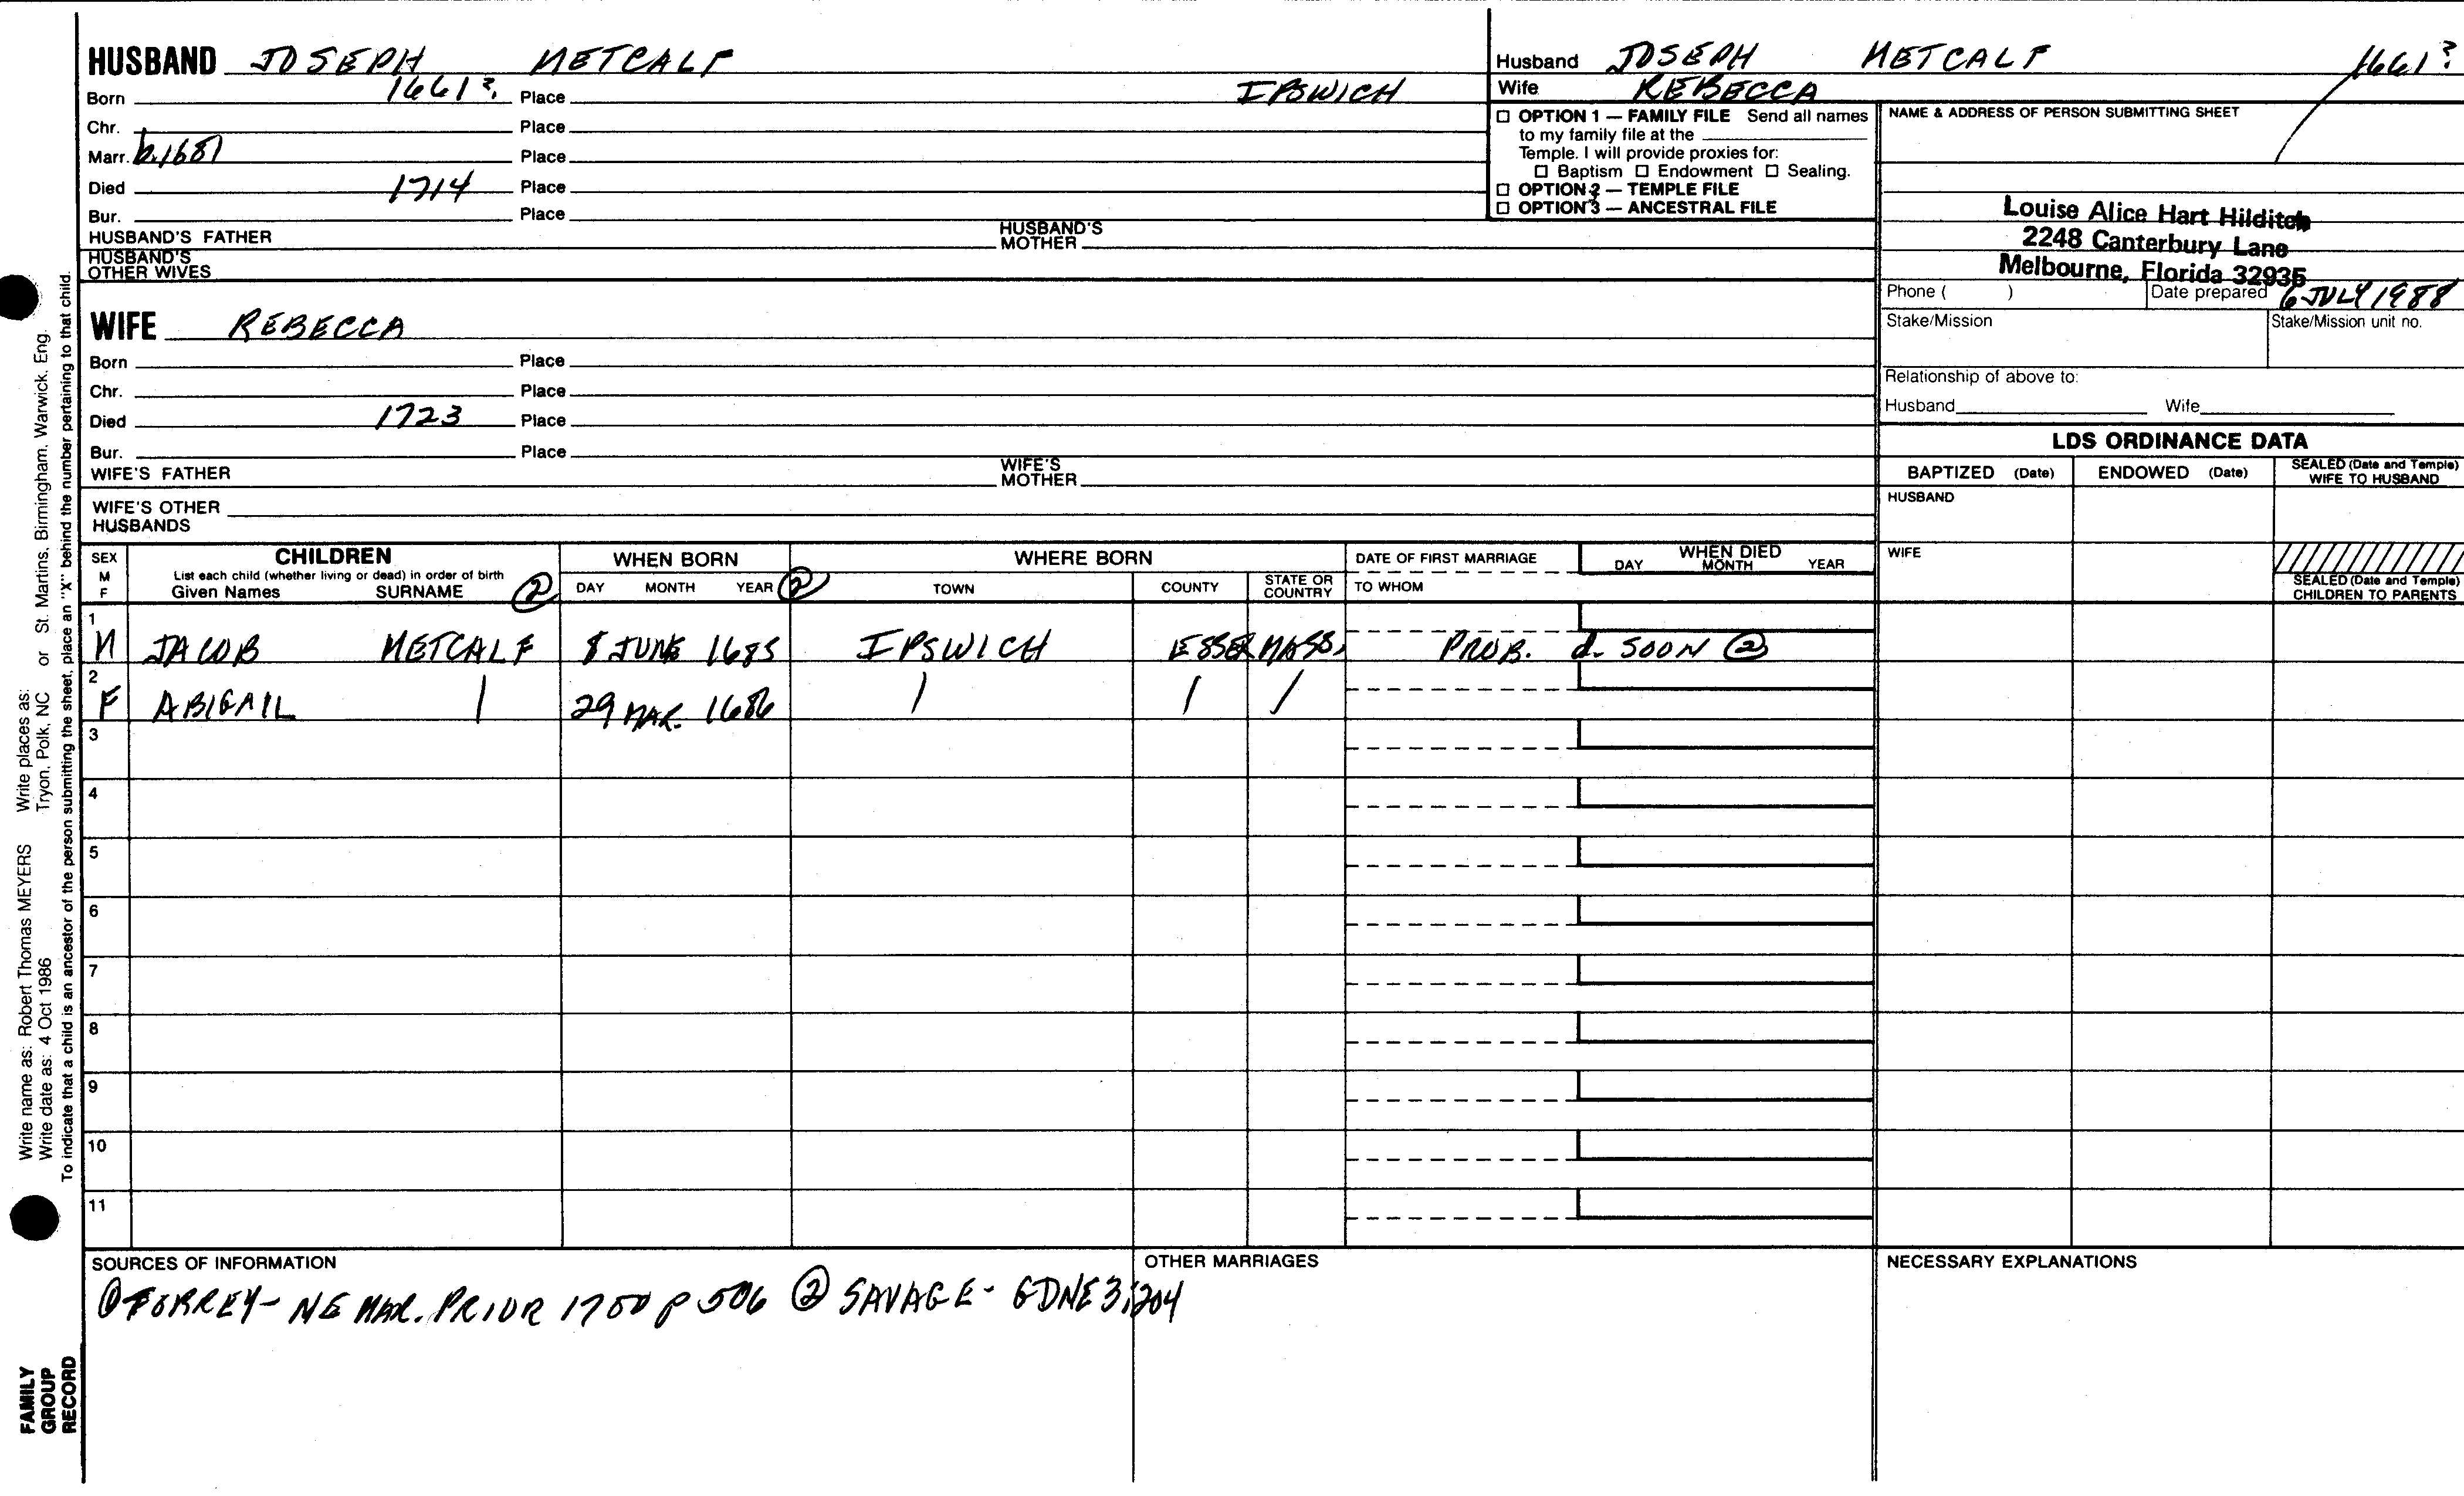 HUSBAND JOSEPH METCALF
Born 1661? Place IPSWICH
Chr. Place
Marr. b.1681 Place
Died 1714 Place
Bur. Place
HUSBAND'S FATHER HUSBAND'S MOTHER
HUSBAND'S OTHER WIVES
Husband JOSEPH METCALF 1661?
Wife REBECCA
☐ OPTION 1 — FAMILY FILE Send all names
to my family file at the
Temple. I will provide proxies for:
☐ Baptism ☐ Endowment ☐ Sealing.
☐ OPTION 2 — TEMPLE FILE
☐ OPTION 3 — ANCESTRAL FILE
NAME & ADDRESS OF PERSON SUBMITTING SHEET
Louise Alice Hart Hilditch
2248 Canterbury Lane
Melbourne, Florida 32935
Phone ( ) Date prepared 6 JULY 1988
Stake/Mission Stake/Mission unit no.
Relationship of above to:
Husband Wife
WIFE REBECCA
Born Place
Chr. Place
Died 1723 Place
Bur. Place
WIFE'S FATHER WIFE'S MOTHER
WIFE'S OTHER
HUSBANDS
LDS ORDINANCE DATA
BAPTIZED (Date) ENDOWED (Date) SEALED (Date and Temple) WIFE TO HUSBAND
HUSBAND
WIFE
SEALED (Date and Temple)
CHILDREN TO PARENTS
SEX M F
CHILDREN
List each child (whether living or dead) in order of birth
Given Names SURNAME ②
WHEN BORN
DAY MONTH YEAR ②
WHERE BORN
TOWN COUNTY STATE OR COUNTRY
DATE OF FIRST MARRIAGE
TO WHOM
WHEN DIED
DAY MONTH YEAR
1 M JACOB METCALF 8 JUNE 1685 IPSWICH ESSEX MASS. PROB. d. SOON ②
2 F ABIGAIL | 29 MAR. 1686 | | |
3
4
5
6
7
8
9
10
11
SOURCES OF INFORMATION
① TORREY - NE MAR. PRIOR 1700 p 506 ② SAVAGE - GDNE 3:204
OTHER MARRIAGES
NECESSARY EXPLANATIONS
Write name as: Robert Thomas MEYERS Write places as: St. Martins, Birmingham, Warwick, Eng.
Write date as: 4 Oct 1986 Tryon, Polk, NC or
To indicate that a child is an ancestor of the person submitting the sheet, place an "X" behind the number pertaining to that child.
FAMILY
GROUP
RECORD